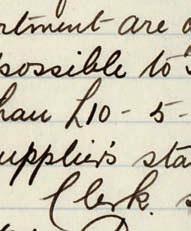 rtment are
possible to
han £10-5-
upplier's sta
Clerk. s